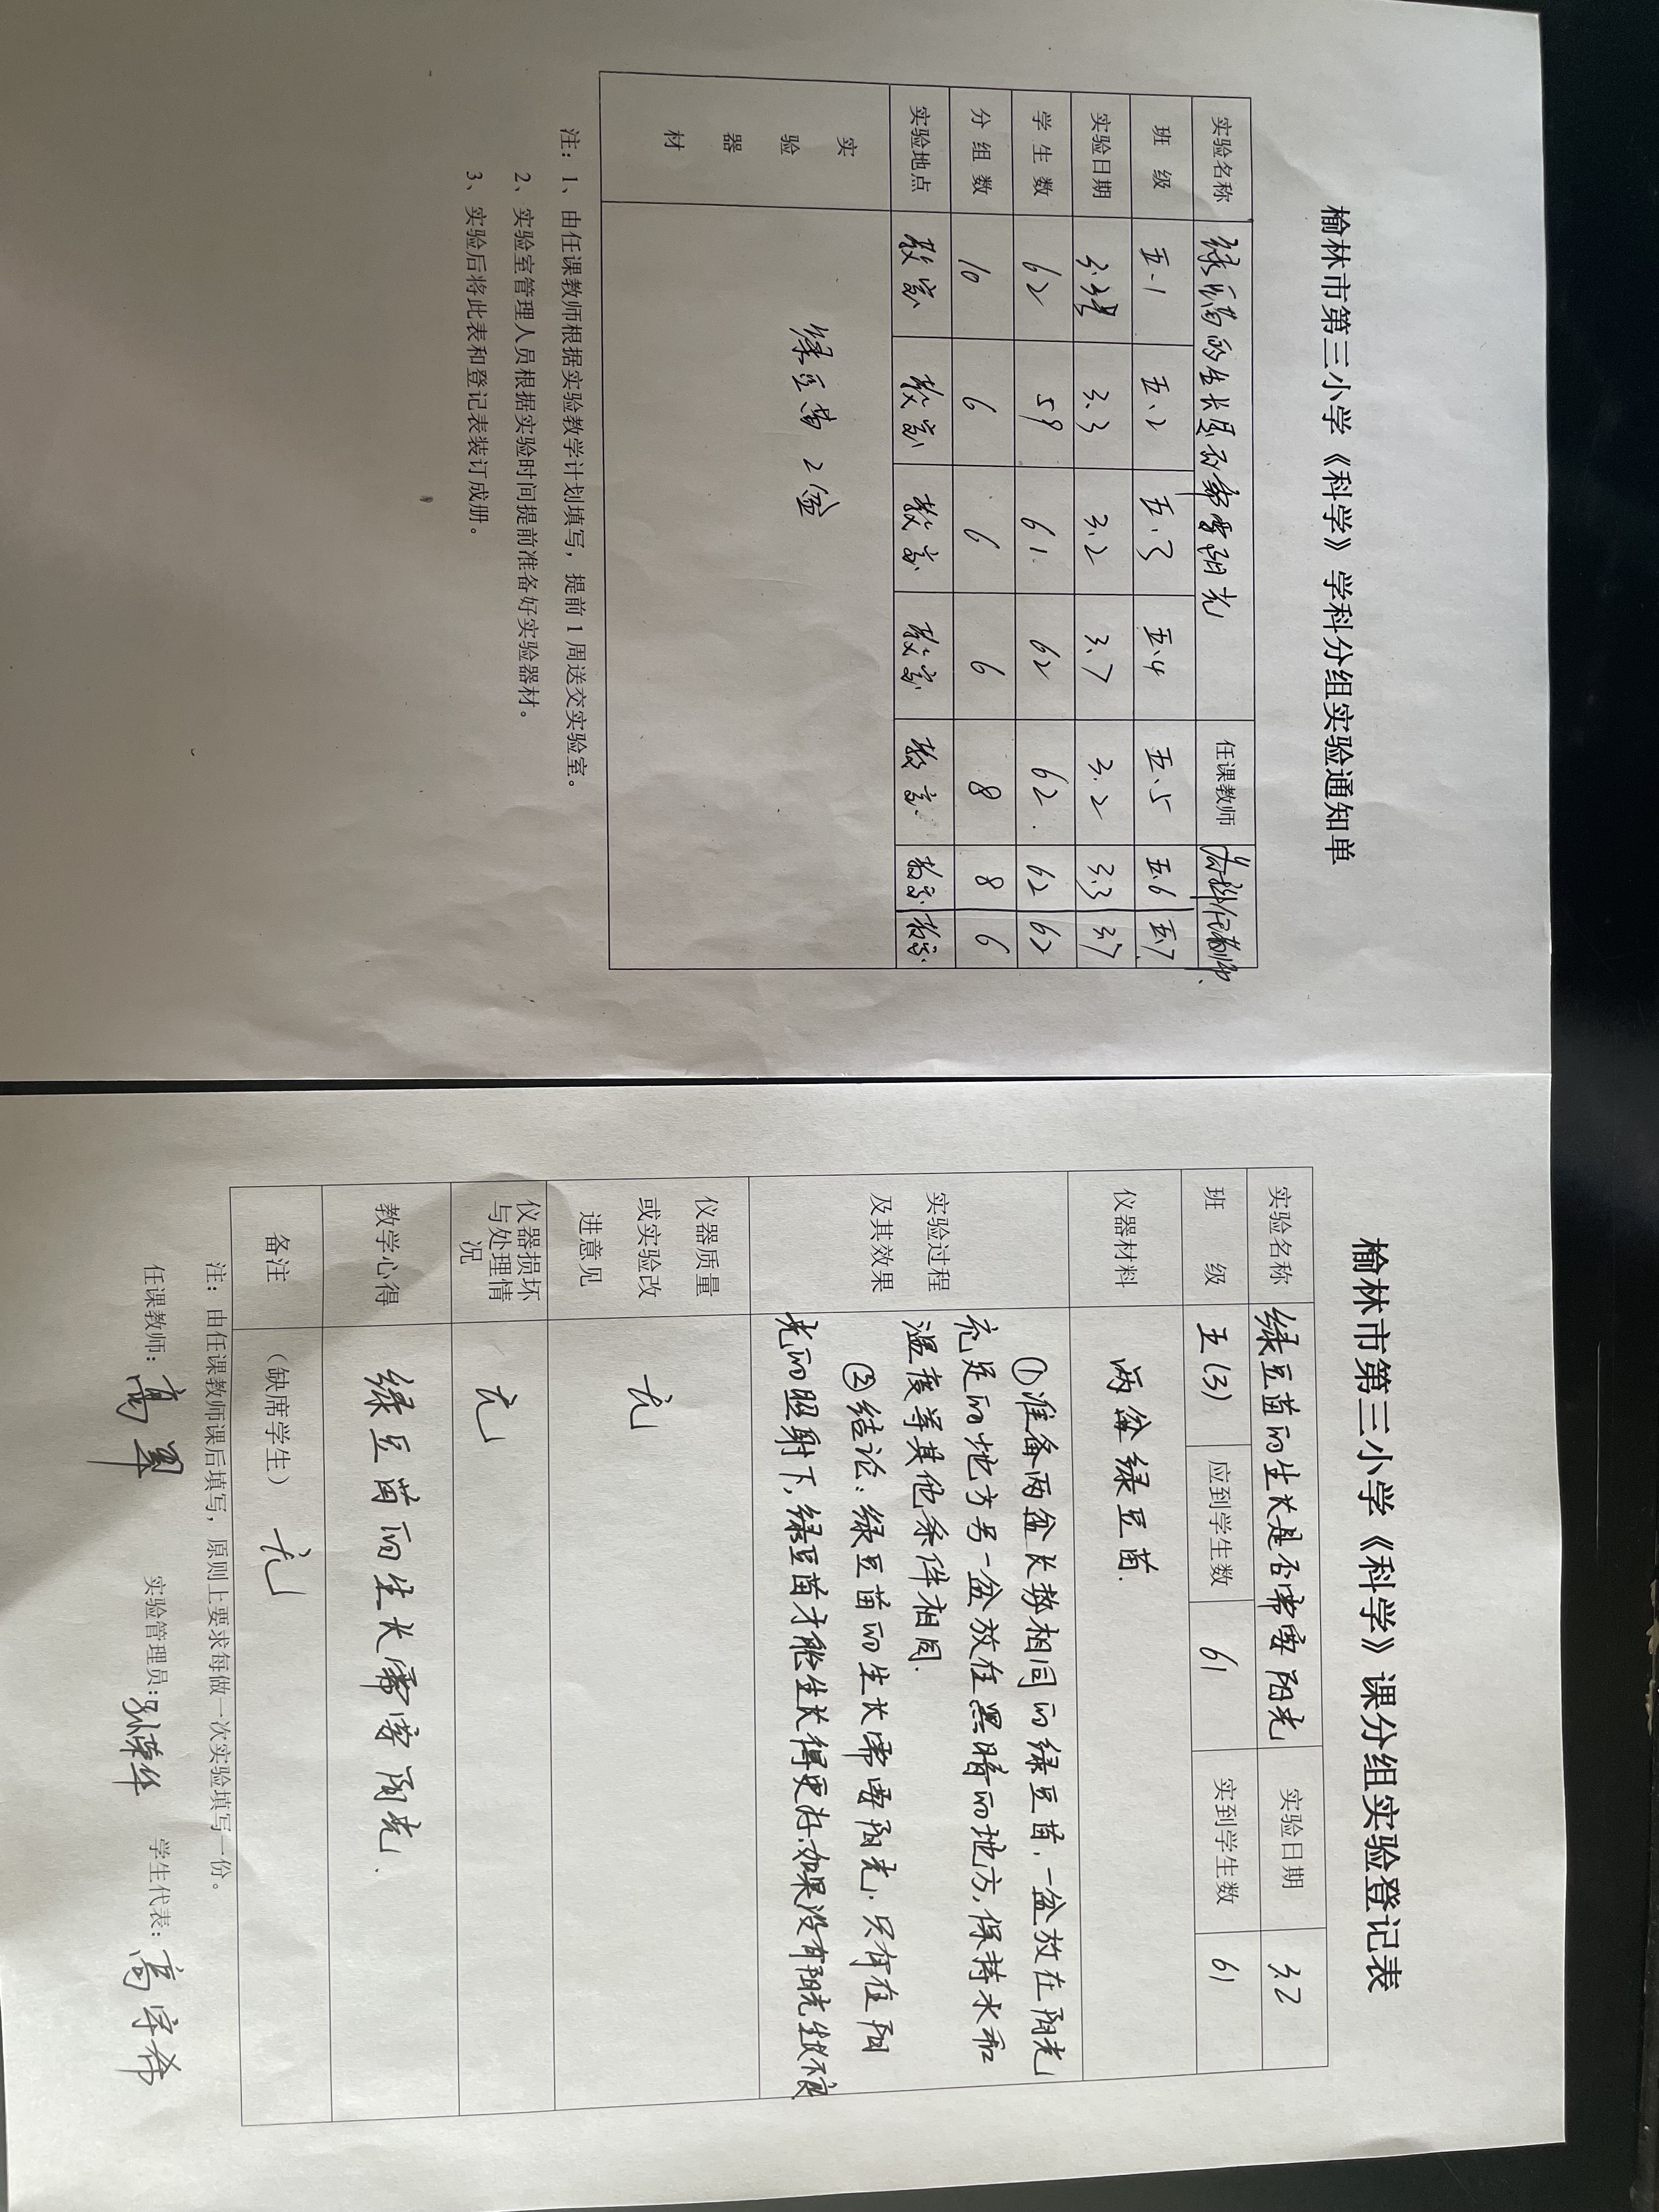 榆林市第三小学《科学》学科分组实验通知单
实验名称 绿豆苗的生长是否需要阳光 任课教师 各科任教师
班 级 五.1 五.2 五.3 五.4 五.5 五.6 五.7
实验日期 3.3 3.2 3.7 3.2 3.3 3.7
学生数 62 59 61 62 62 62 62
分组数 10 6 6 6 8 8 6
实验地点 教室 教室 教室 教室 教室 教室 教室
实验器材 绿豆苗 2盆
注：1、由任课教师根据实验教学计划填写，提前1周送交实验室。
2、实验室管理人员根据实验时间提前准备好实验器材。
3、实验后将此表和登记表装订成册。
榆林市第三小学《科学》课分组实验登记表
实验名称 绿豆苗的生长是否需要阳光 实验日期 3.2
班 级 五(3) 应到学生数 61 实到学生数 61
仪器材料 两盆绿豆苗.
实验过程及其效果
①准备两盆长势相同的绿豆苗，一盆放在阳光
充足的地方另一盆放在黑暗的地方，保持水和
温度等其他条件相同.
②结论：绿豆苗的生长需要阳光.只有在阳
光的照射下，绿豆苗才能生长得更好.如果没有阳光生长不良
仪器质量或实验改进意见 无
仪器损坏与处理情况 无
教学心得 绿豆苗的生长需要阳光.
备注 （缺席学生） 无
注：由任课教师课后填写，原则上要求每做一次实验填写一份。
任课教师：高 实验管理员: 学生代表：高宇希